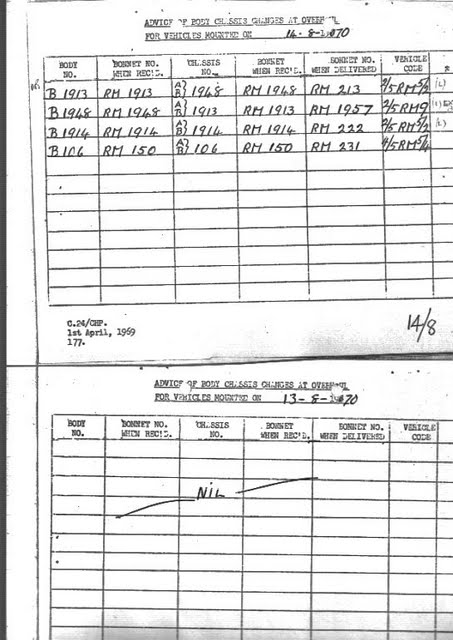 ADVICE OF BODY CHASSIS CHANGES AT OVERHAUL
FOR VEHICLES MOUNTED ON 14-8-1970
BODY NO. BONNET NO. WHEN REC'D. CHASSIS NO. BONNET WHEN REC'D. BONNET NO. WHEN DELIVERED VEHICLE CODE
B 1913 RM 1913 A} B} 1948 RM 1948 RM 213 2/5RM5/2 (L)
B 1948 RM 1948 A} B} 1913 RM 1913 RM 1957 2/5RM9
B 1914 RM 1914 A} B} 1914 RM 1914 RM 222 2/5RM5/2 (L)
B 106 RM 150 A} B} 106 RM 150 RM 231 4/5RM5/4
C.24/CHP.
1st April, 1969
177.
14/8
ADVICE OF BODY CHASSIS CHANGES AT OVERHAUL
FOR VEHICLES MOUNTED ON 13-8-1970
BODY NO. BONNET NO. WHEN REC'D. CHASSIS NO. BONNET WHEN REC'D. BONNET NO. WHEN DELIVERED VEHICLE CODE
NIL